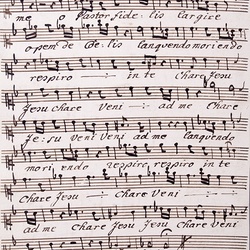 me o Pastor fide: lis largire
opem de Cœ: lis languendo moriendo
respiro in te Chare Jesu
Jesu chare Veni ad me Chare
Je: su veni Veni ad me languendo
mori endo respiro respiro in te
Chare Jesu Chare Veni
ad me Chare Jesu Jesu Chare